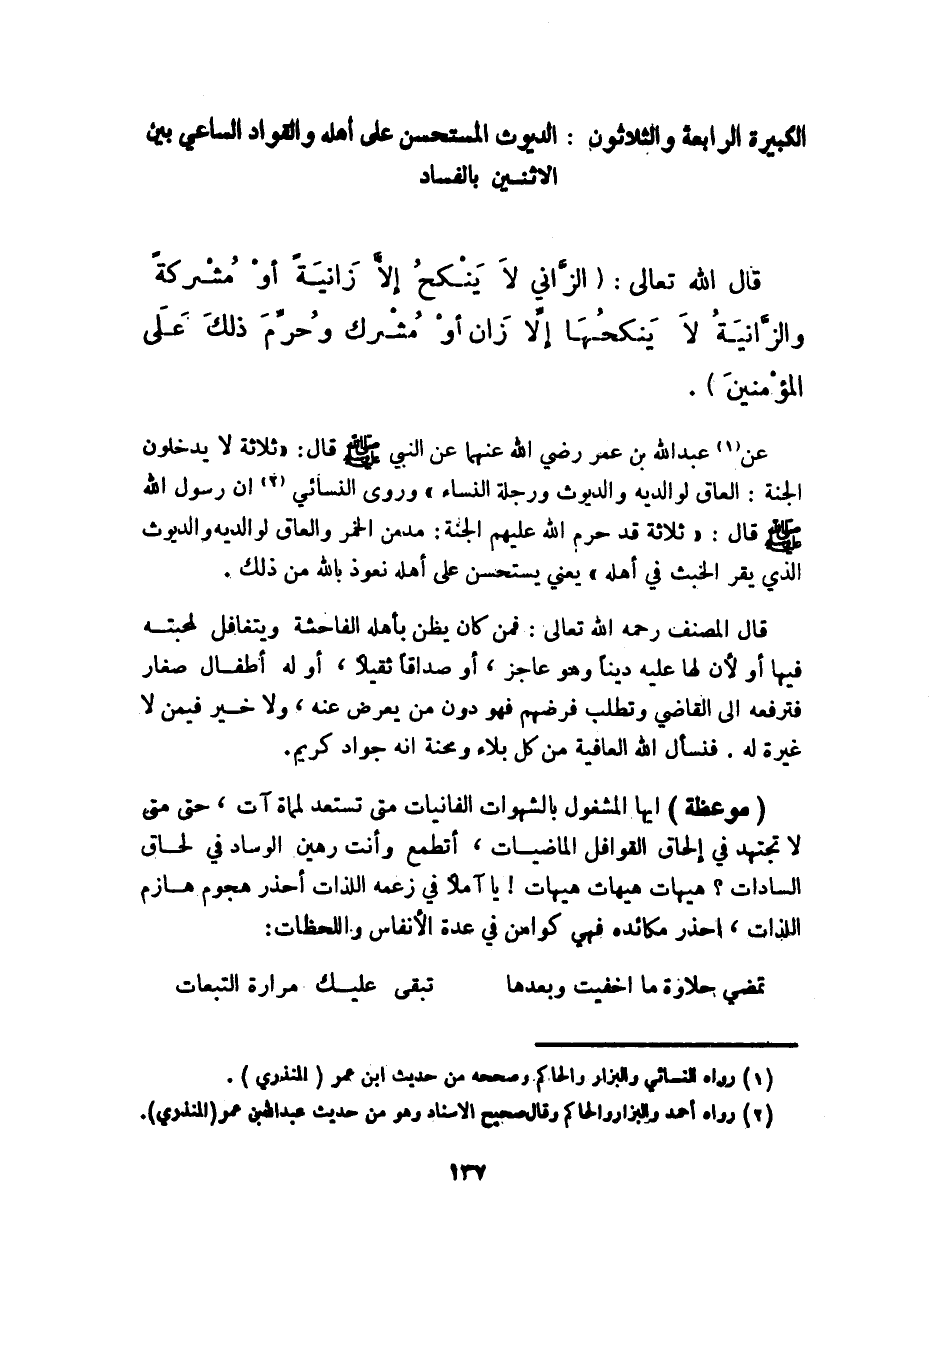 الكبيرة الرابعة والثلاثون : الديوث المستحسن على أهله والقواد الساعي بين
الاثنــين بالفساد
قال الله تعالى : ( الزَّاني لاَ يَنْـكحُ إلاَّ زَانيَـةً أوْ مُشْـركةً
والزَّانيَـةُ لاَ يَنكحُـهَا إلَّا زَان أوْ مُشْـرك وحُرِّمَ ذلكَ عَـلَى
المؤْمنينَ ) .
عن(١) عبدالله بن عمر رضي الله عنهما عن النبي ﷺ قال: «ثلاثة لا يدخلون
الجنة : العاق لوالديه والديوث ورجلة النساء » وروى النسائي (٢) ان رسول الله
ﷺ قال : « ثلاثة قد حرم الله عليهم الجنة: مدمن الخمر والعاق لوالديه والديوث
الذي يقر الخبث في أهله » يعني يستحسن على أهله نعوذ بالله من ذلك .
قال المصنف رحمه الله تعالى : فمن كان يظن بأهله الفاحشة ويتغافل لمحبتــه
فيها أو لأن لها عليه ديناً وهو عاجز ، أو صداقاً ثقيلاً ، أو له أطفــال صغار
فترفعه الى القاضي وتطلب فرضهم فهو دون من يعرض عنه ، ولا خــير فيمن لا
غيرة له . فنسأل الله العافية من كل بلاء ومحنة انه جواد كريم.
( موعظة ) ايها المشغول بالشهوات الفانيات متى تستعد لمماة آت ، حتى متى
لا تجتهد في إلحاق القوافل الماضيــات ، أتطمع وأنت رهين الوساد في لحــاق
السادات ؟ هيهات هيهات هيهات ! يا آملاً في زعمه اللذات أحذر هجوم هــازم
اللذات ، احذر مكائده فهي كوامن في عدة الأنفاس واللحظات:
تمضي حلاوة ما اخفيت وبعدها تبقى عليــك مرارة التبعات
(١) رواه النسائي والبزار والحاكم وصححه من حديث ابن عمر ( المنذري ) .
(٢) رواه أحمد والبزار والحاكم وقال صحيح الاسناد وهو من حديث عبدالله بن عمر (المنذري).
١٣٧